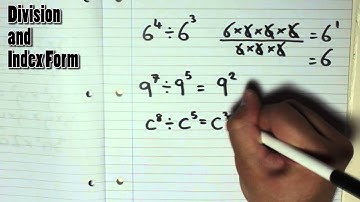 Division
and
Index Form
6⁴ ÷ 6³
6×6×6×6 = 6¹
6×6×6
= 6
9⁷ ÷ 9⁵ = 9²
c⁸ ÷ c⁵ = c